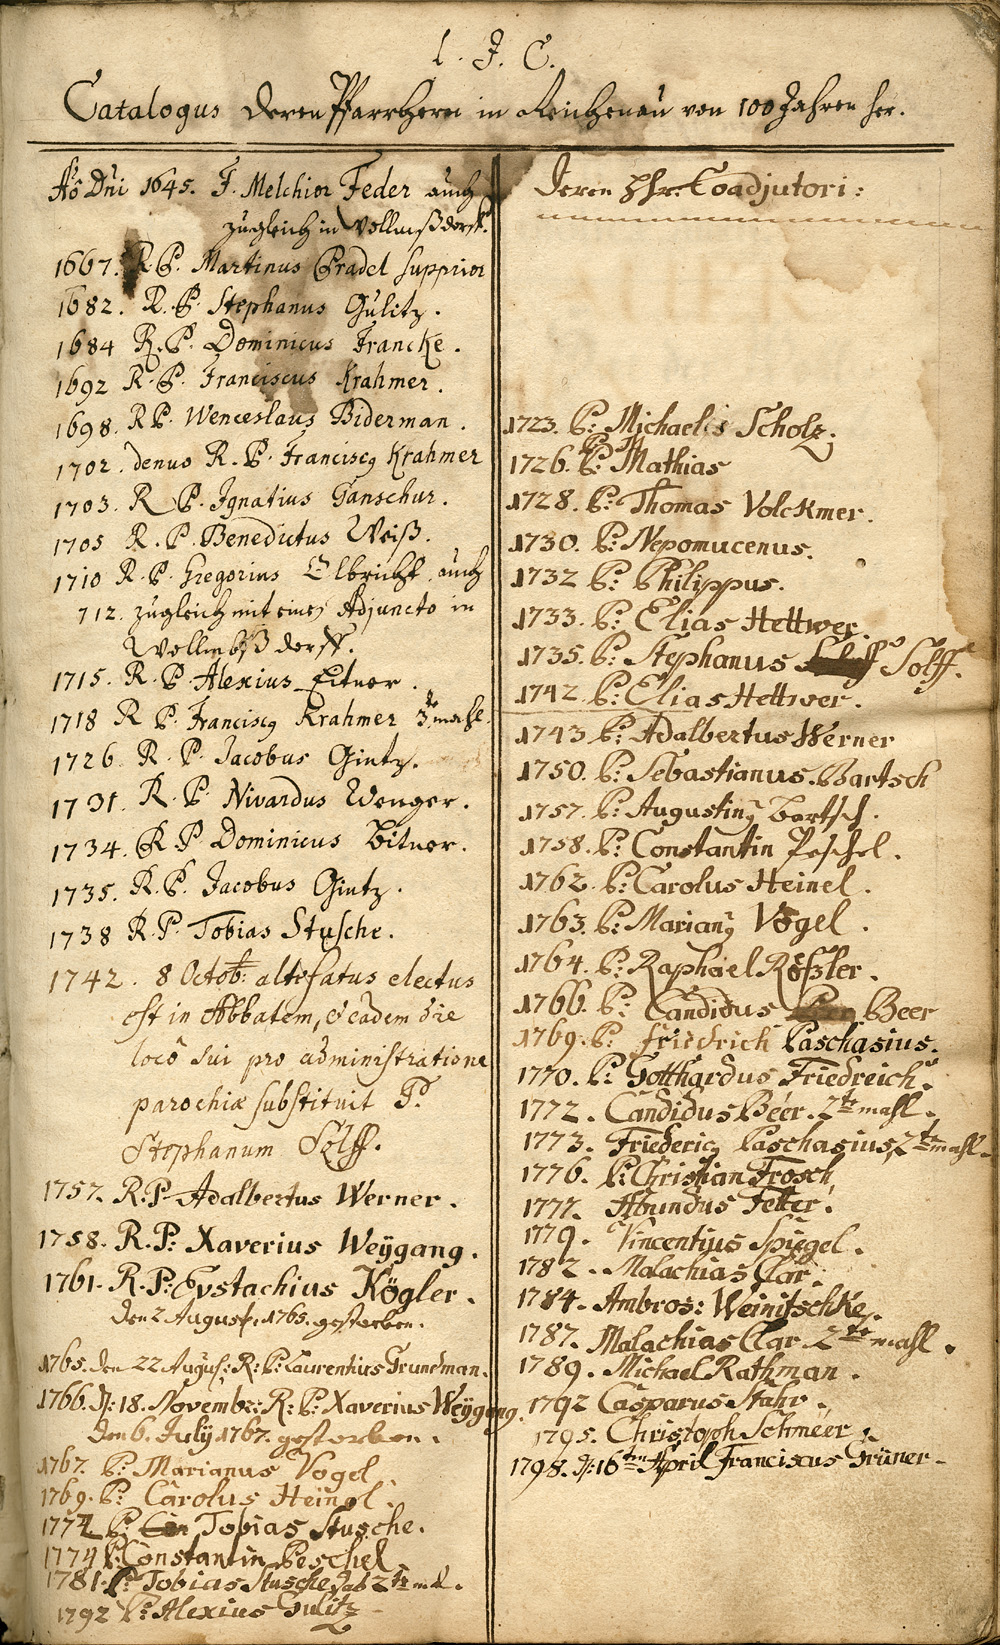 l. J. C.
Catalogus deren Pfarrherrn in Reichenau von 100 Jahren her.
Ao Dni 1645. F. Melchior Feder auch
zugleich in Vollmßdorff.
1667. R. P. Martinus Gradel supprior
1682. R. P. Stephanus Gulitz.
1684 R. P. Dominicus Francke.
1692 R. P. Franciscus Krahmer.
1698. R P. Wenceslaus Biderman.
1702. denuo R. P. Franciscq Krahmer
1703. R P. Ignatius Tanschur.
1705 R. P. Benedictus Weiß.
1710 R. P. Gregorius Olbricht auch
712. zugleich mit einem Adjuncto in
Vollmßdorff.
1715. R. P. Alexius Eitner.
1718 R P. Franciscq Krahmer 3te mahl.
1726. R. P. Jacobus Gintz.
1731. R. P. Nivardus Wenger.
1734. R P Dominicus Bitner.
1735. R. P. Jacobus Gintz.
1738 R. P. Tobias Stusche.
1742. 8 Octob: altefatus electus
est in Abbatem, & eadem die
loco sui pro administratione
parochiæ substituit P.
Stephanum Sölff.
1757. R. P. Adalbertus Werner.
1758. R. P: Xaverius Weÿgang.
1761. R. P: Eustachius Kögler.
den 2 August. 1765. gestorben.
1765. den 22 August: R: P: Laurentius Grundman.
1766. D: 18. Novembr: R: P: Xaverius Weÿgang.
den 6. Julÿ 1767. gestorben.
1767. P: Marianus Vogel
1769. P: Carolus Heinel.
1772 P: Tobias Stusche.
1774 P: Constantin Peschel
1781. P: Tobias Stusche 2te m.
1792 P: Alexius Gulitz
Deren Hhr: Coadjutori:
1723. P: Michaelis Scholz.
1726. P: Mathias
1728. P: Thomas Volckmer.
1730. P: Nepomucenus.
1732 P: Philippus.
1733. P: Elias Hettwer.
1735. P: Stephanus Solff.
1742. P: Elias Hettwer.
1743 P: Adalbertus Werner
1750. P: Sebastianus Bartsch
1757. P: Augustinq Bartsch.
1758. P: Constantin Peschel.
1762. P: Carolus Heinel.
1763. P: Marianq Vogel.
1764. P: Raphael Rößler.
1766. P: Candidus Beer
1769. P: Friedrich Paschasius.
1770. P: Gotthardus Friedreich.
1772. Candidus Beer. 2te mahl.
1773. Friedericq Paschasius, 2te mahl.
1776. P: Christian Frosch,
1777. Abundus Fetter.
1779. Vincentius Spügel.
1782. Malachias Clar.
1784. Ambros: Weinitschke.
1787. Malachias Clar 2te mahl.
1789. Michael Rathman.
1792 Casparus Stahr.
1795. Christoph Schmeer.
1798. D: 16ten April Franciscus Grüner.